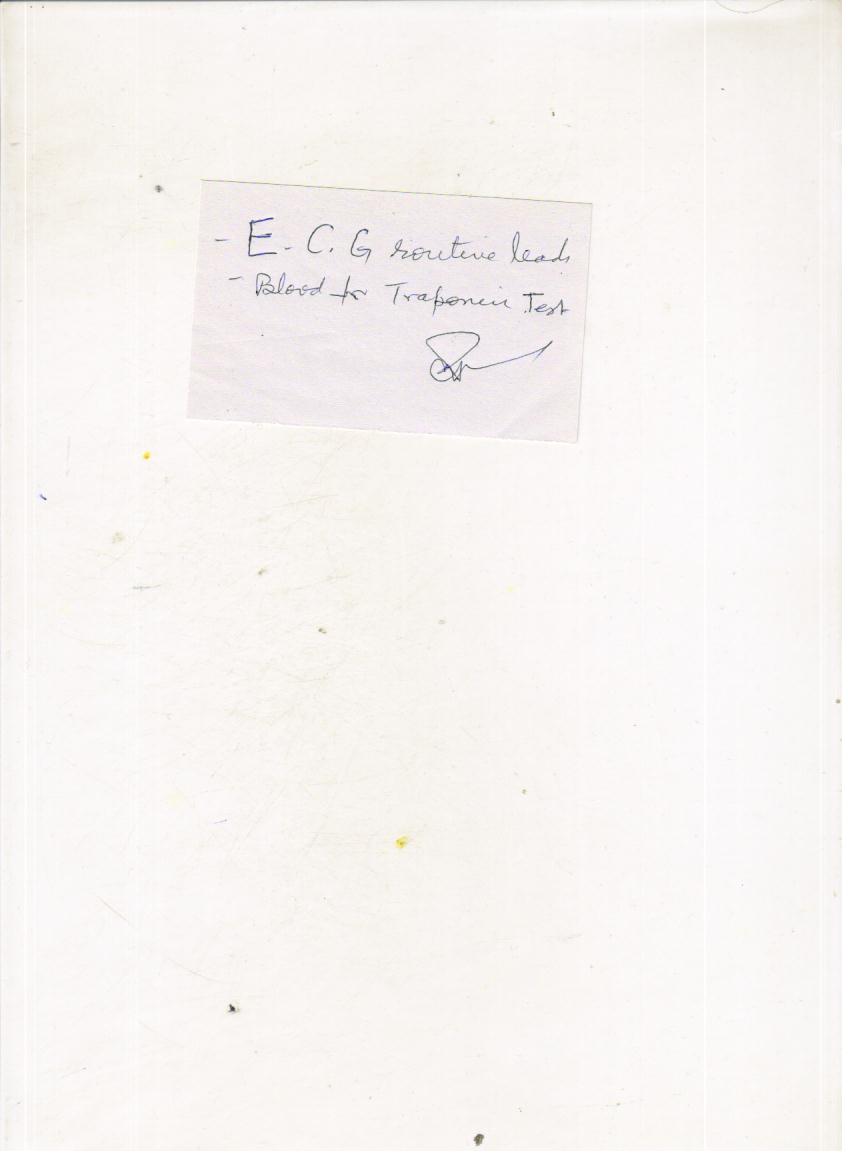 - E. C. G routine leads
- Blood for Traponin Test